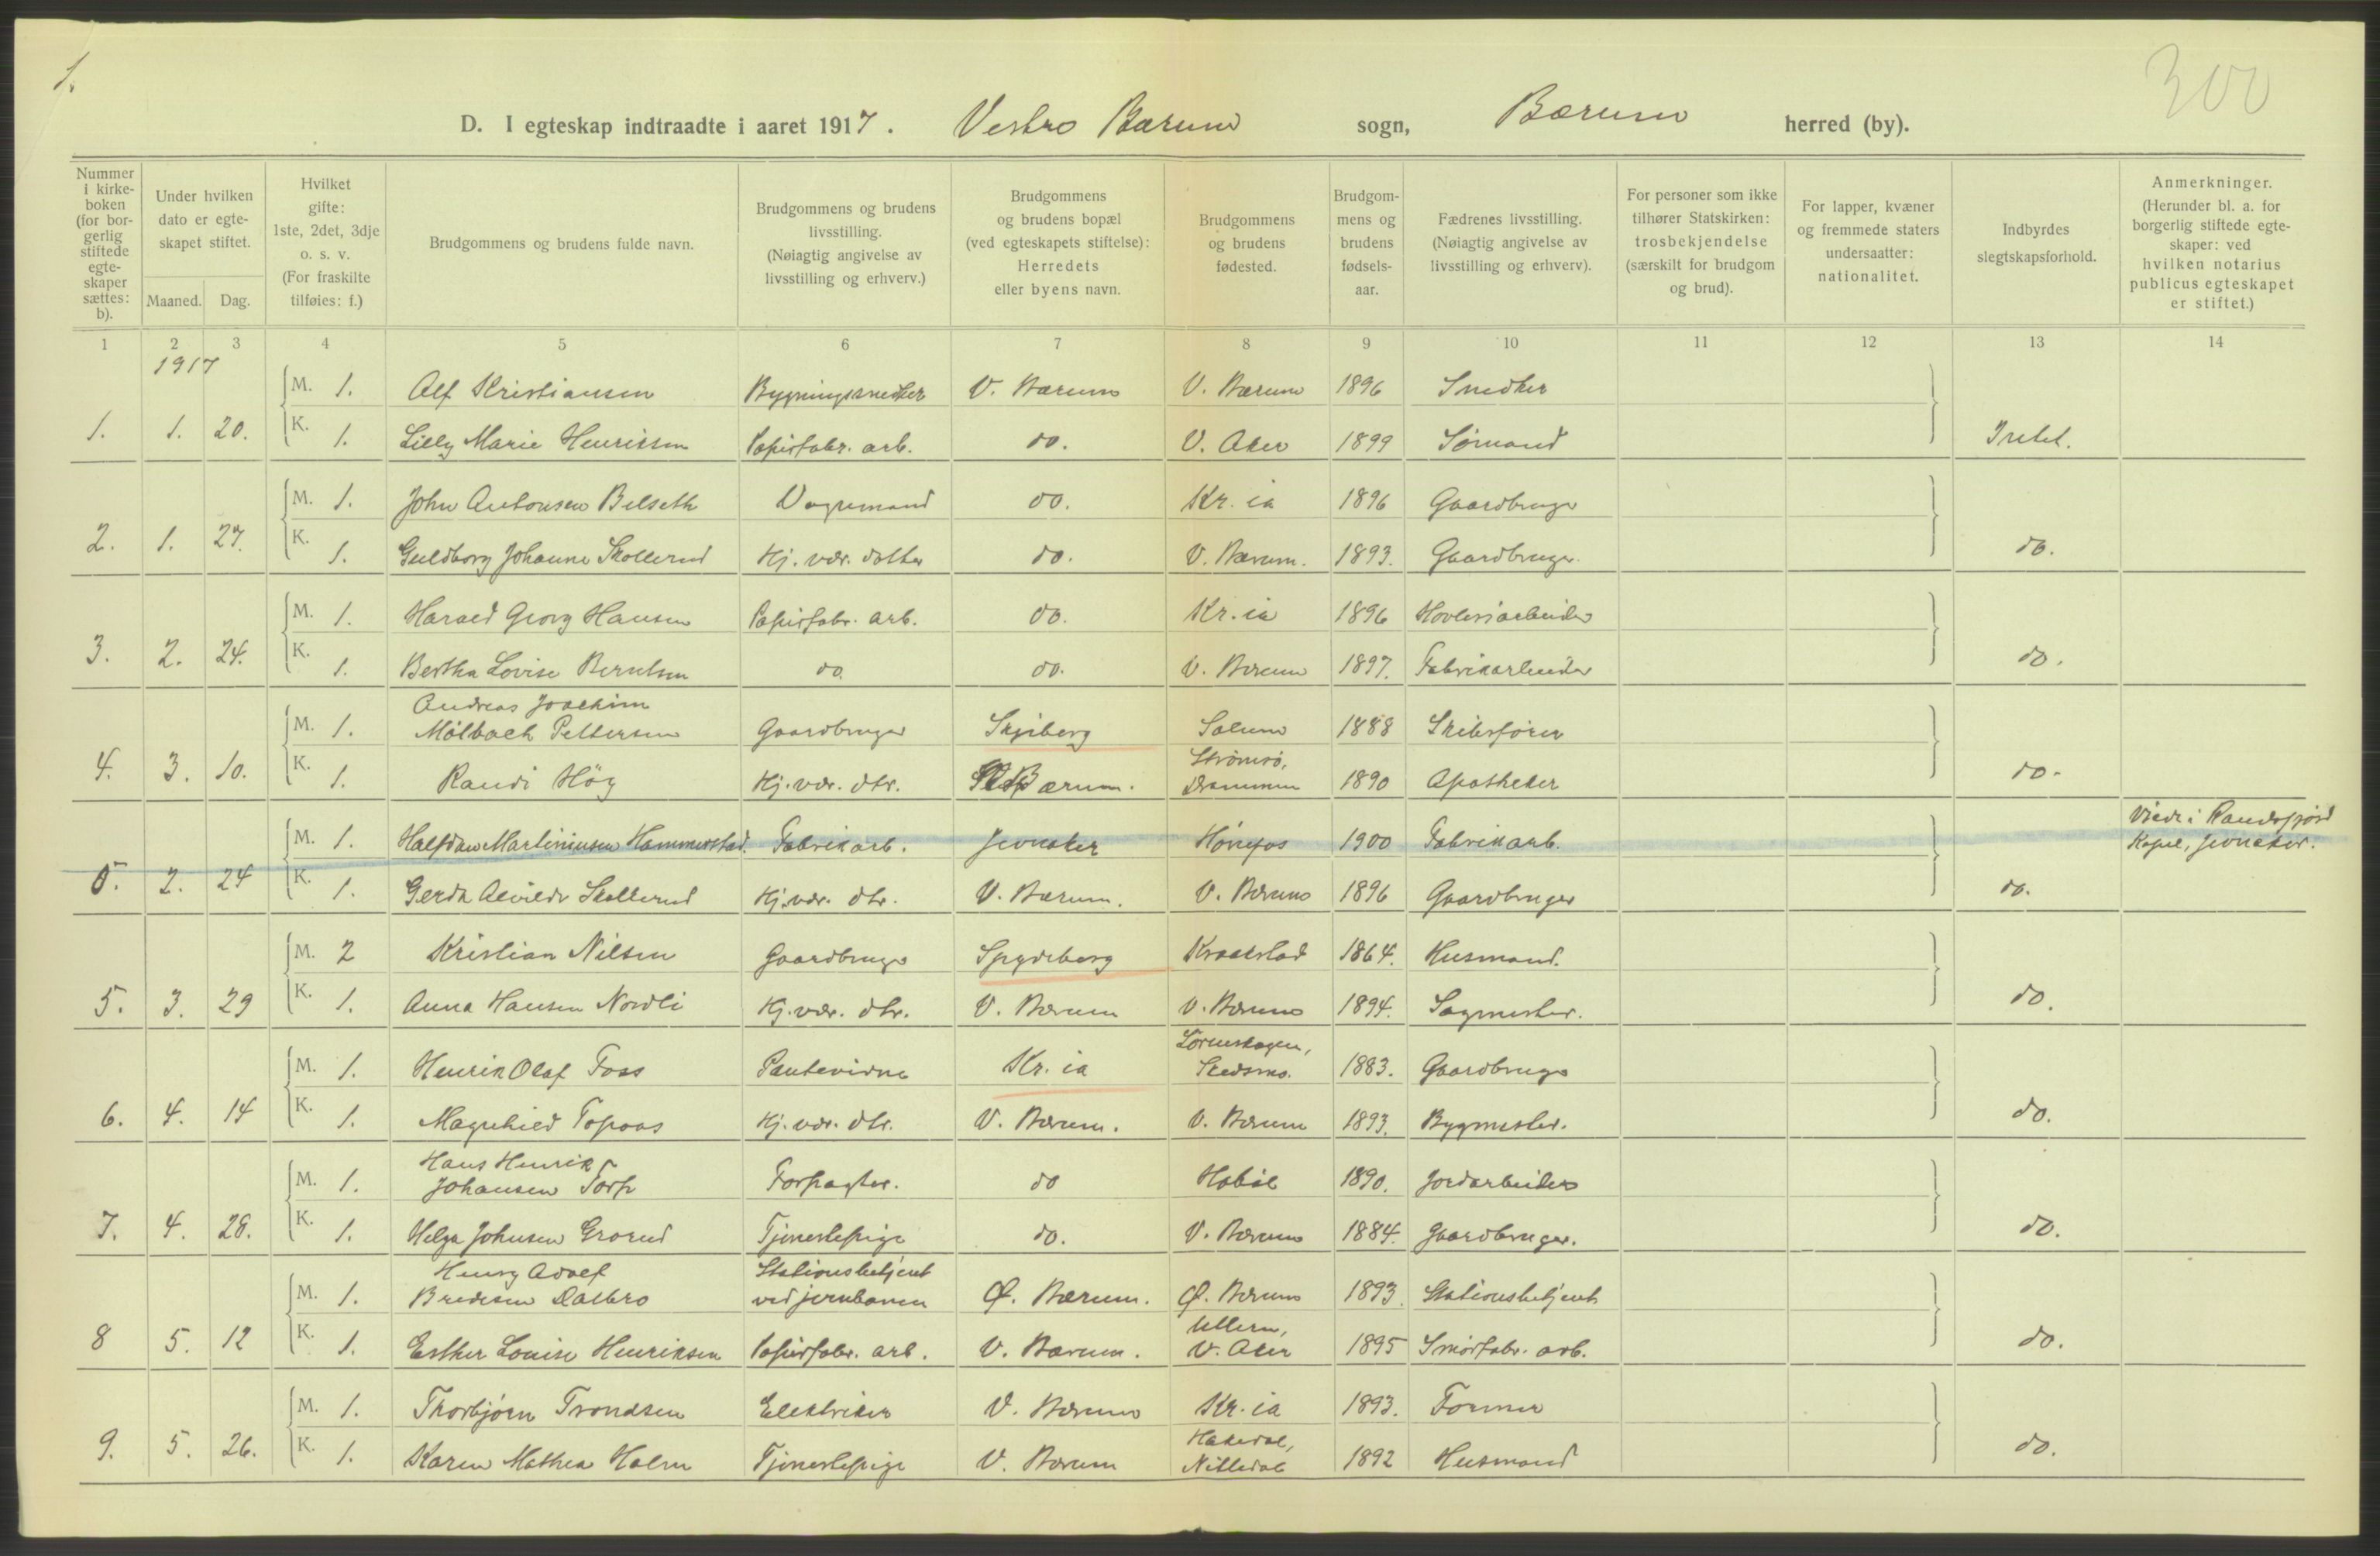 1.
300
D. I egteskap indtraadte i aaret 1917. Vestre Bærum sogn, Bærum herred (by).
Nummer i kirkeboken (for borgerlig stiftede egteskaper sættes: b).
Under hvilken dato er egteskapet stiftet.
Maaned. Dag.
Hvilket gifte: 1ste, 2det, 3dje o. s. v. (For fraskilte tilføies: f.)
Brudgommens og brudens fulde navn.
Brudgommens og brudens livsstilling. (Nøiagtig angivelse av livsstilling og erhverv.)
Brudgommens og brudens bopæl (ved egteskapets stiftelse): Herredets eller byens navn.
Brudgommens og brudens fødested.
Brudgommens og brudens fødselsaar.
Fædrenes livsstilling. (Nøiagtig angivelse av livsstilling og erhverv).
For personer som ikke tilhører Statskirken: trosbekjendelse (særskilt for brudgom og brud).
For lapper, kvæner og fremmede staters undersaatter: nationalitet.
Indbyrdes slegtskapsforhold.
Anmerkninger. (Herunder bl. a. for borgerlig stiftede egteskaper: ved hvilken notarius publicus egteskapet er stiftet.)
1 2 3 4 5 6 7 8 9 10 11 12 13 14
1917
M. 1. Alf Kristiansen Bygningssnedker V. Bærum V. Bærum 1896 Snedker
1. 1. 20. K. 1. Lilly Marie Henriksen Papirfabr. arb. do. V. Aker 1899 Sømand Intet.
M. 1. John Antonsen Belseth Vognmand do. Kr.ia 1896 Gaardbruger
2. 1. 27. K. 1. Guldborg Johanne Skollerud Hj. vær. datter do. V. Bærum. 1893. Gaardbruger. do.
M. 1. Harald Georg Hansen Papirfabr. arb. do. Kr.ia 1896 Høvleriarbeider
3. 2. 24. K. 1. Bertha Lovise Berntsen do. do. V. Bærum 1897. Fabrikarbeider do.
Andreas Joachim
M. 1. Mölbach Pettersen Gaardbruger Skjeberg Solum 1888 Skibsfører
Strømsø,
4. 3. 10. K. 1. Randi Hög Hj. vær. dtr. Bærum. Drammen 1890 Apotheker do.
Viede i Randsfjord
M. 1. Halfdan Martiniusen Hammerstad. Fabrikarb. Jevnaker Hønefos 1900 Fabrikarb. Kapel, Jevnaker.
0. 2. 24 K. 1. Gerda Alvilde Skollerud Hj. vær. dtr. V. Bærum. V. Bærum 1896 Gaardbruger do.
M. 2 Kristian Nilsen Gaardbruger Spydeberg Kraakstad 1864. Husmand.
5. 3. 29 K. 1. Anna Hansen Nordli Hj. vær. dtr. V. Bærum V. Bærum 1894. Sagmester. do.
Lørenskogen,
M. 1. Henrik Olaf Foss Kr.ia Skedsmo. 1883. Gaardbruger
6. 4. 14 K. 1. Magnhild Topaas Hj. vær. dtr. V. Bærum. V. Bærum 1893. Bygmester. do.
Hans Henrik
M. 1. Johansen Torp Forpagter. do Hobøl 1890. Jordarbeider
7. 4. 28. K. 1. Helga Johnsen Grorud Tjenestepige do. V. Bærum 1884. Gaardbruger. do.
Henry Adolf Stationsbetjent
M. 1. Bredesen Dalbro ved jernbanen Ø. Bærum. Ø. Bærum 1893. Stationsbetjent
Ullern,
8 5. 12 K. 1. Esther Louise Henriksen Papirfabr. arb. V. Bærum. V. Aker 1895 Smørfabr. arb. do.
M. 1. Thorbjørn Trondsen Elektriker V. Bærum Kr.ia 1893. Former
Hakedal,
9. 5. 26. K. 1. Karen Mathea Holm Tjenestepige V. Bærum Nittedal 1892 Husmand do.